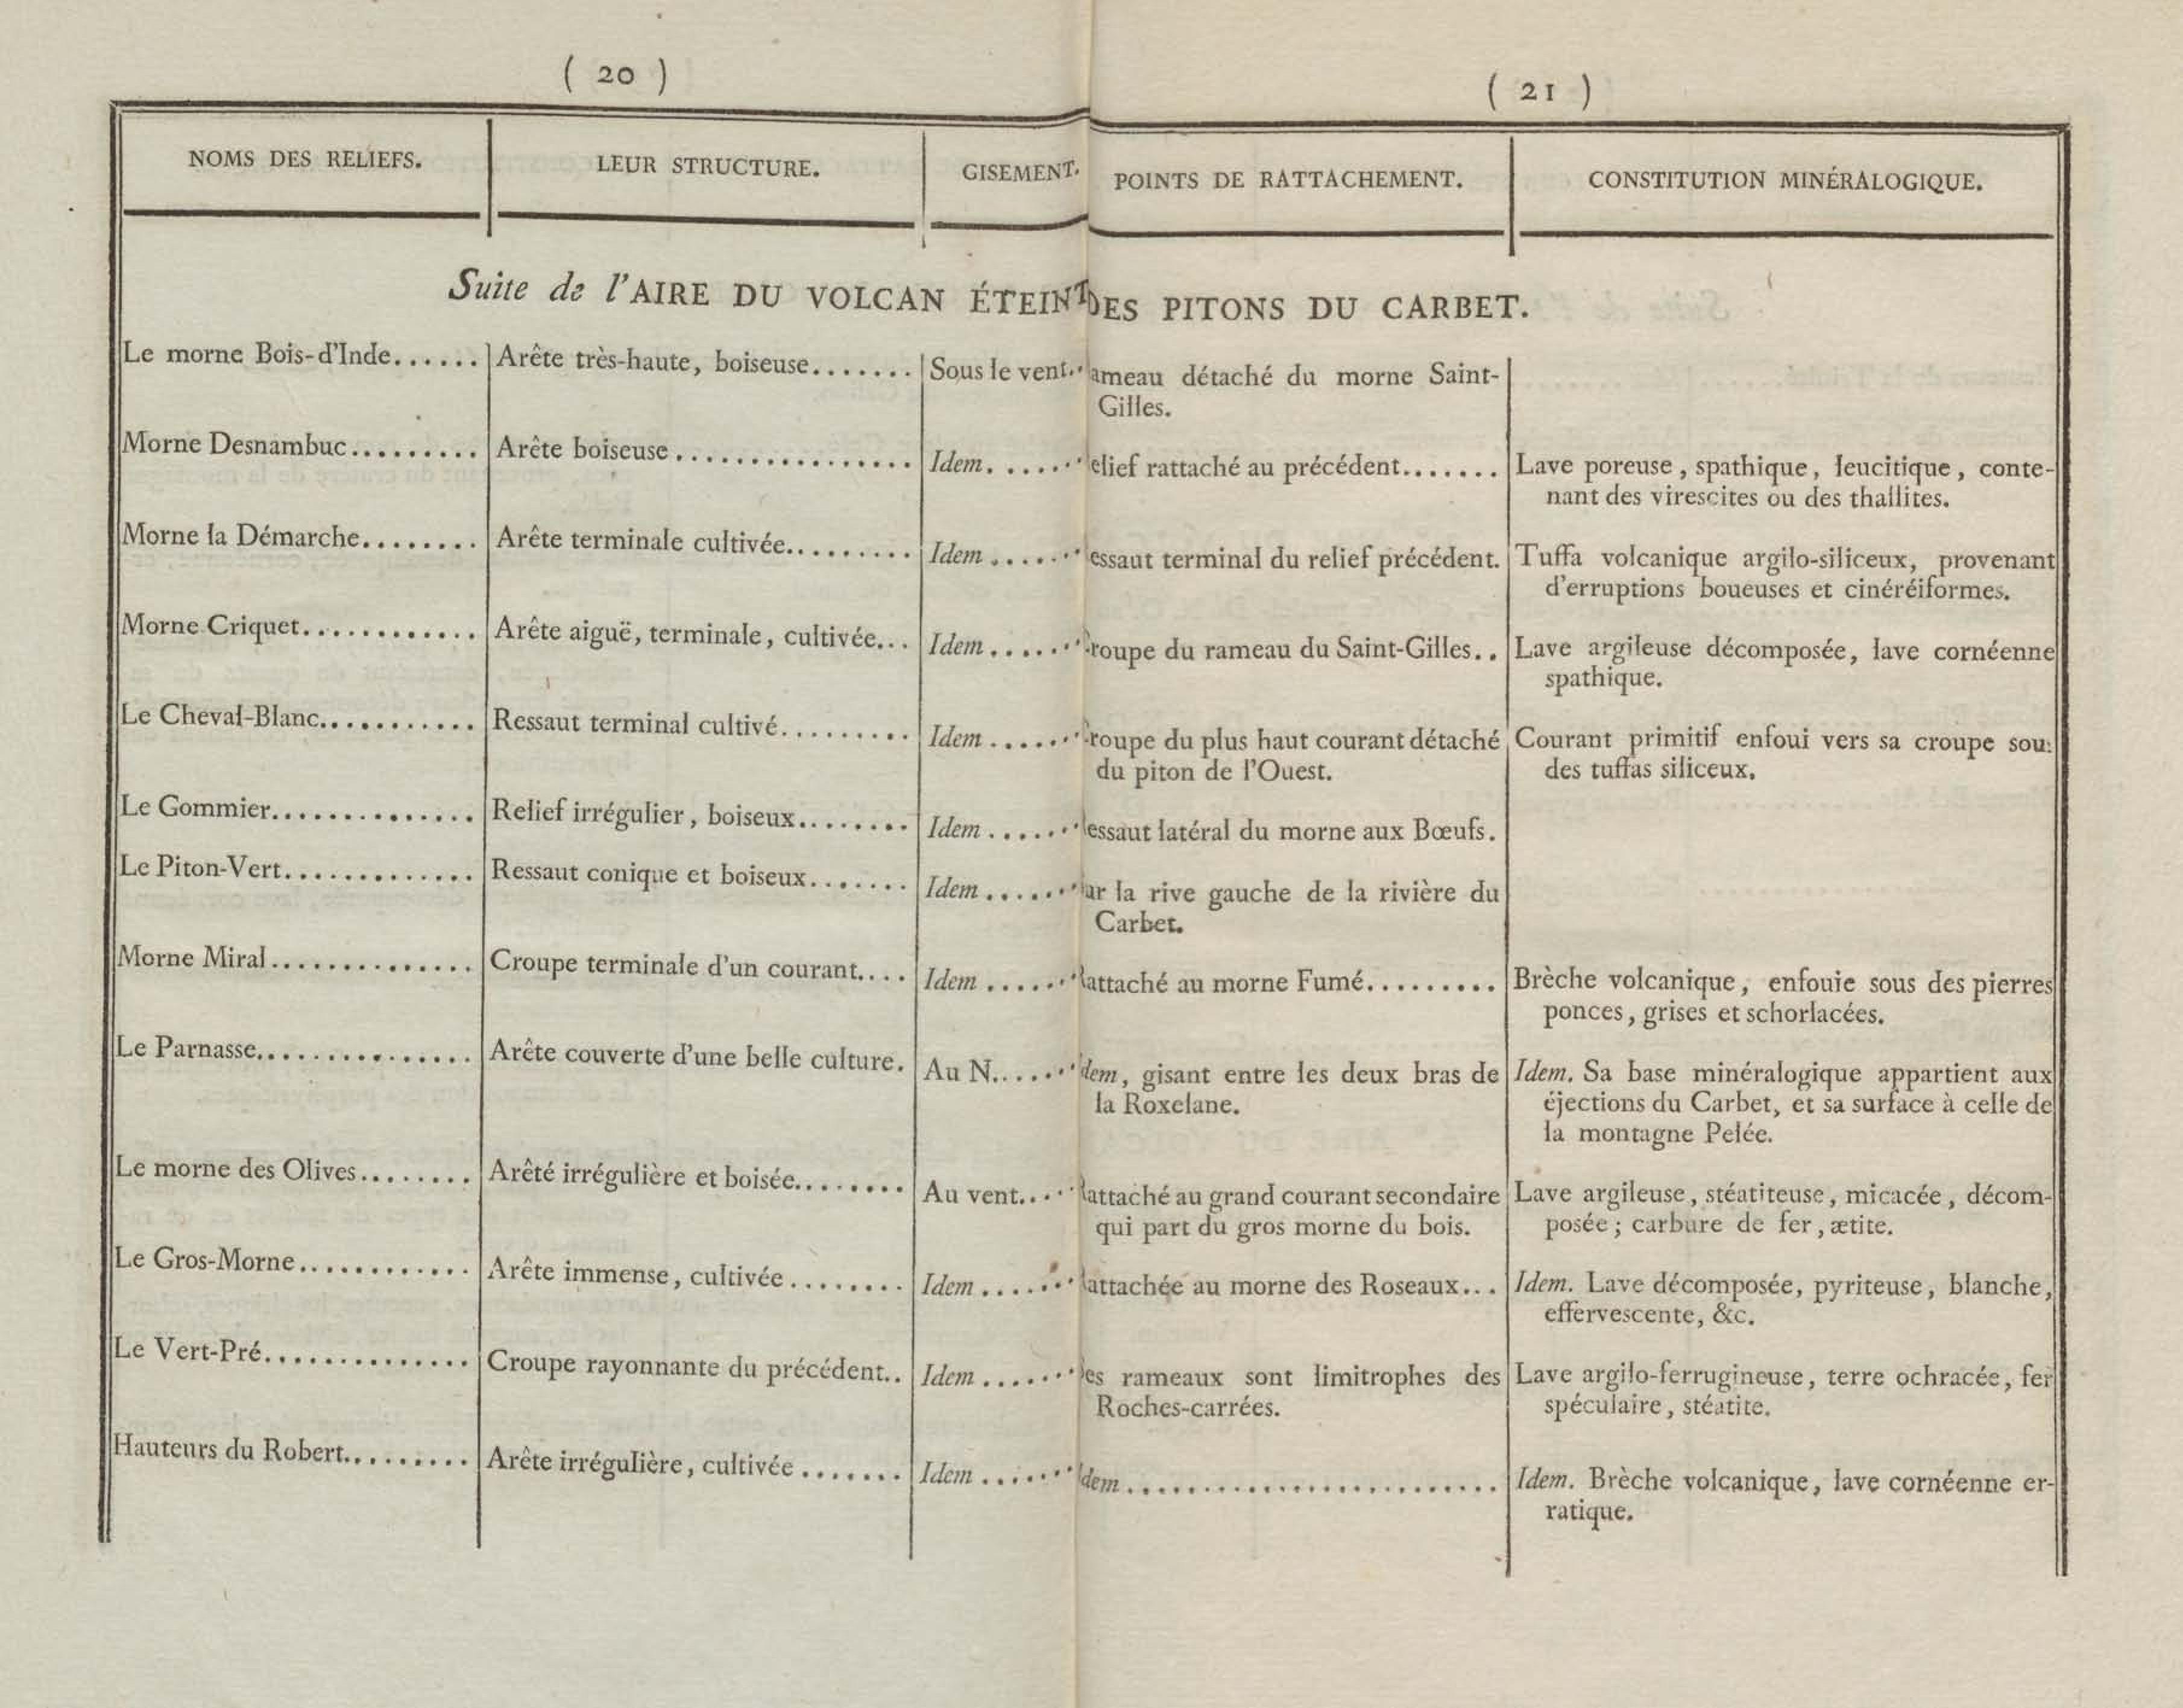 ( 20 )
( 21 )
NOMS DES RELIEFS.
LEUR STRUCTURE.
GISEMENT.
POINTS DE RATTACHEMENT.
CONSTITUTION MINÉRALOGIQUE.
Suite de l'AIRE DU VOLCAN ÉTEINT DES PITONS DU CARBET.
Le morne Bois-d'Inde...... Arête très-haute, boiseuse....... Sous le vent.. ameau détaché du morne Saint-
Gilles.
Morne Desnambuc......... Arête boiseuse................ Idem....... elief rattaché au précédent....... Lave poreuse, spathique, leucitique, conte-
nant des virescites ou des thallites.
Morne la Démarche........ Arête terminale cultivée.......... Idem...... essaut terminal du relief précédent. Tuffa volcanique argilo-siliceux, provenant
d'erruptions boueuses et cinéréiformes.
Morne Criquet............ Arête aiguë, terminale, cultivée... Idem....... roupe du rameau du Saint-Gilles.. Lave argileuse décomposée, lave cornéenne
spathique.
Le Cheval-Blanc........... Ressaut terminal cultivé......... Idem....... roupe du plus haut courant détaché Courant primitif enfoui vers sa croupe sou
du piton de l'Ouest. des tuffas siliceux.
Le Gommier.............. Relief irrégulier, boiseux........ Idem....... essaut latéral du morne aux Bœufs.
Le Piton-Vert............. Ressaut conique et boiseux....... Idem....... ur la rive gauche de la rivière du
Carbet.
Morne Miral.............. Croupe terminale d'un courant.... Idem....... attaché au morne Fumé......... Brèche volcanique, enfouie sous des pierres
ponces, grises et schorlacées.
Le Parnasse............... Arête couverte d'une belle culture. Au N...... dem, gisant entre les deux bras de Idem. Sa base minéralogique appartient aux
la Roxelane. éjections du Carbet, et sa surface à celle de
la montagne Pelée.
Le morne des Olives........ Arêté irrégulière et boisée........ Au vent.... attaché au grand courant secondaire Lave argileuse, stéatiteuse, micacée, décom-
qui part du gros morne du bois. posée; carbure de fer, ætite.
Le Gros-Morne............ Arête immense, cultivée........ Idem....... attachée au morne des Roseaux... Idem. Lave décomposée, pyriteuse, blanche,
effervescente, &c.
Le Vert-Pré.............. Croupe rayonnante du précédent.. Idem....... es rameaux sont limitrophes des Lave argilo-ferrugineuse, terre ochracée, fer
Roches-carrées. spéculaire, stéatite.
Hauteurs du Robert......... Arête irrégulière, cultivée....... Idem....... dem......................... Idem. Brèche volcanique, lave cornéenne er-
ratique.